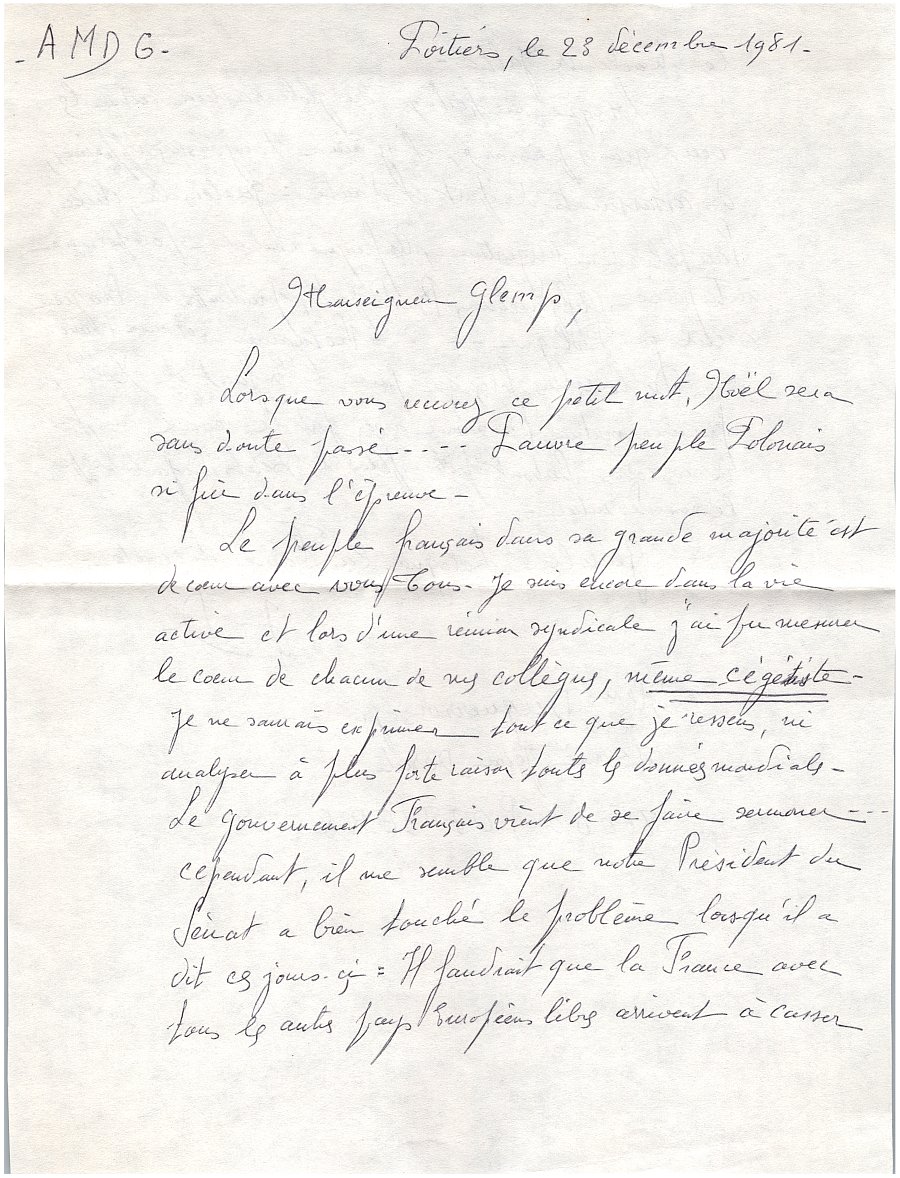 - AMDG -
Poitiers, le 23 décembre 1981 -
Monseigneur Glemp,
Lorsque vous recevrez ce petit mot, Noël sera
sans doute passé - - - - Pauvre peuple Polonais
si fier dans l'épreuve -
Le peuple français dans sa grande majorité est
de coeur avec vous Tous - Je suis encore dans la vie
active et lors d'une réunion syndicale j'ai pu mesurer
le coeur de chacun de mes collègues, même cégétiste -
Je ne saurais exprimer tout ce que je ressens, ni
analyser à plus forte raison toutes les données mondiales -
Le gouvernement Français vient de se faire sermoner - - -
cependant, il me semble que notre Président du
Sénat a bien touché le problème lorsqu'il a
dit ces jours-ci = Il faudrait que la France avec
tous les autres pays Européens libres arrivent à casser